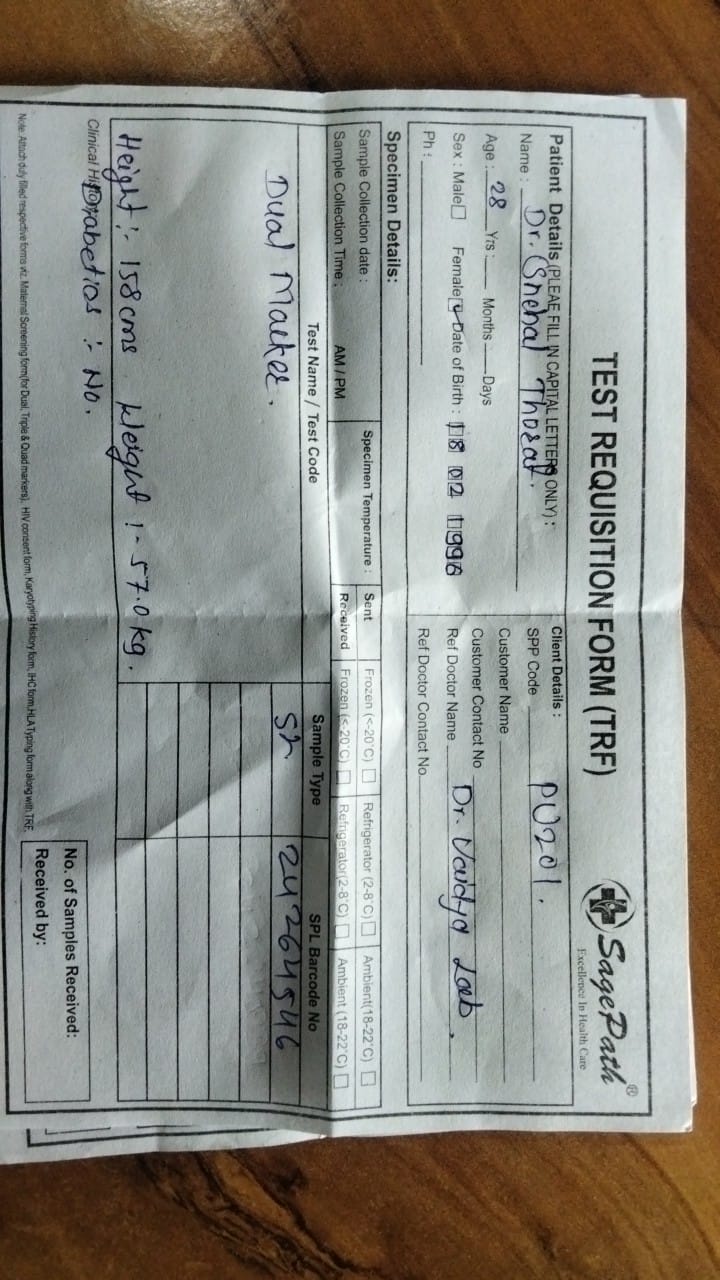 TEST REQUISITION FORM (TRF)
SagePath®
Excellence In Health Care
Patient Details (PLEAE FILL IN CAPITAL LETTERS ONLY) :
Name : Dr. Snehal Thorat.
Age : 28 Yrs : Months Days
Sex : Male Female Date of Birth : 18 02 1996
Ph :
Client Details :
SPP Code PU201.
Customer Name
Customer Contact No
Ref Doctor Name Dr. Vaidya Lab.
Ref Doctor Contact No
Specimen Details:
Sample Collection date : Specimen Temperature : Sent Frozen (<-20°C) Refrigerator (2-8°C) Ambient(18-22°C)
Sample Collection Time : AM / PM Received Frozen (≤-20°C) Refrigerator(2-8°C) Ambient (18-22°C)
Test Name / Test Code Sample Type SPL Barcode No
Dual Marker. 24264546
Height :- 158 cms. Weight :- 57.0 kg.
Clinical Diabetics :- No.
Note: Attach duly filled respective forms viz. Maternal Screening form(for Dual, Triple & Quad markers), HIV consent form, Karyotyping History form, IHC form,HLA Typing form along with TRF.
No. of Samples Received:
Received by: